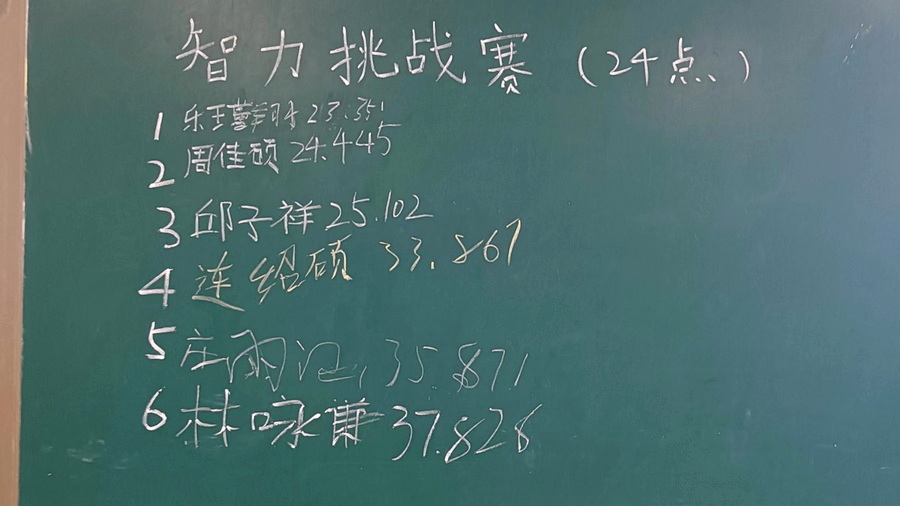 智力挑战赛（24点）
1 23.351
2 周佳硕 24.445
3 邱子祥 25.102
4 连绍硕 33.867
5 庄雨 35.871
6 林咏 37.828